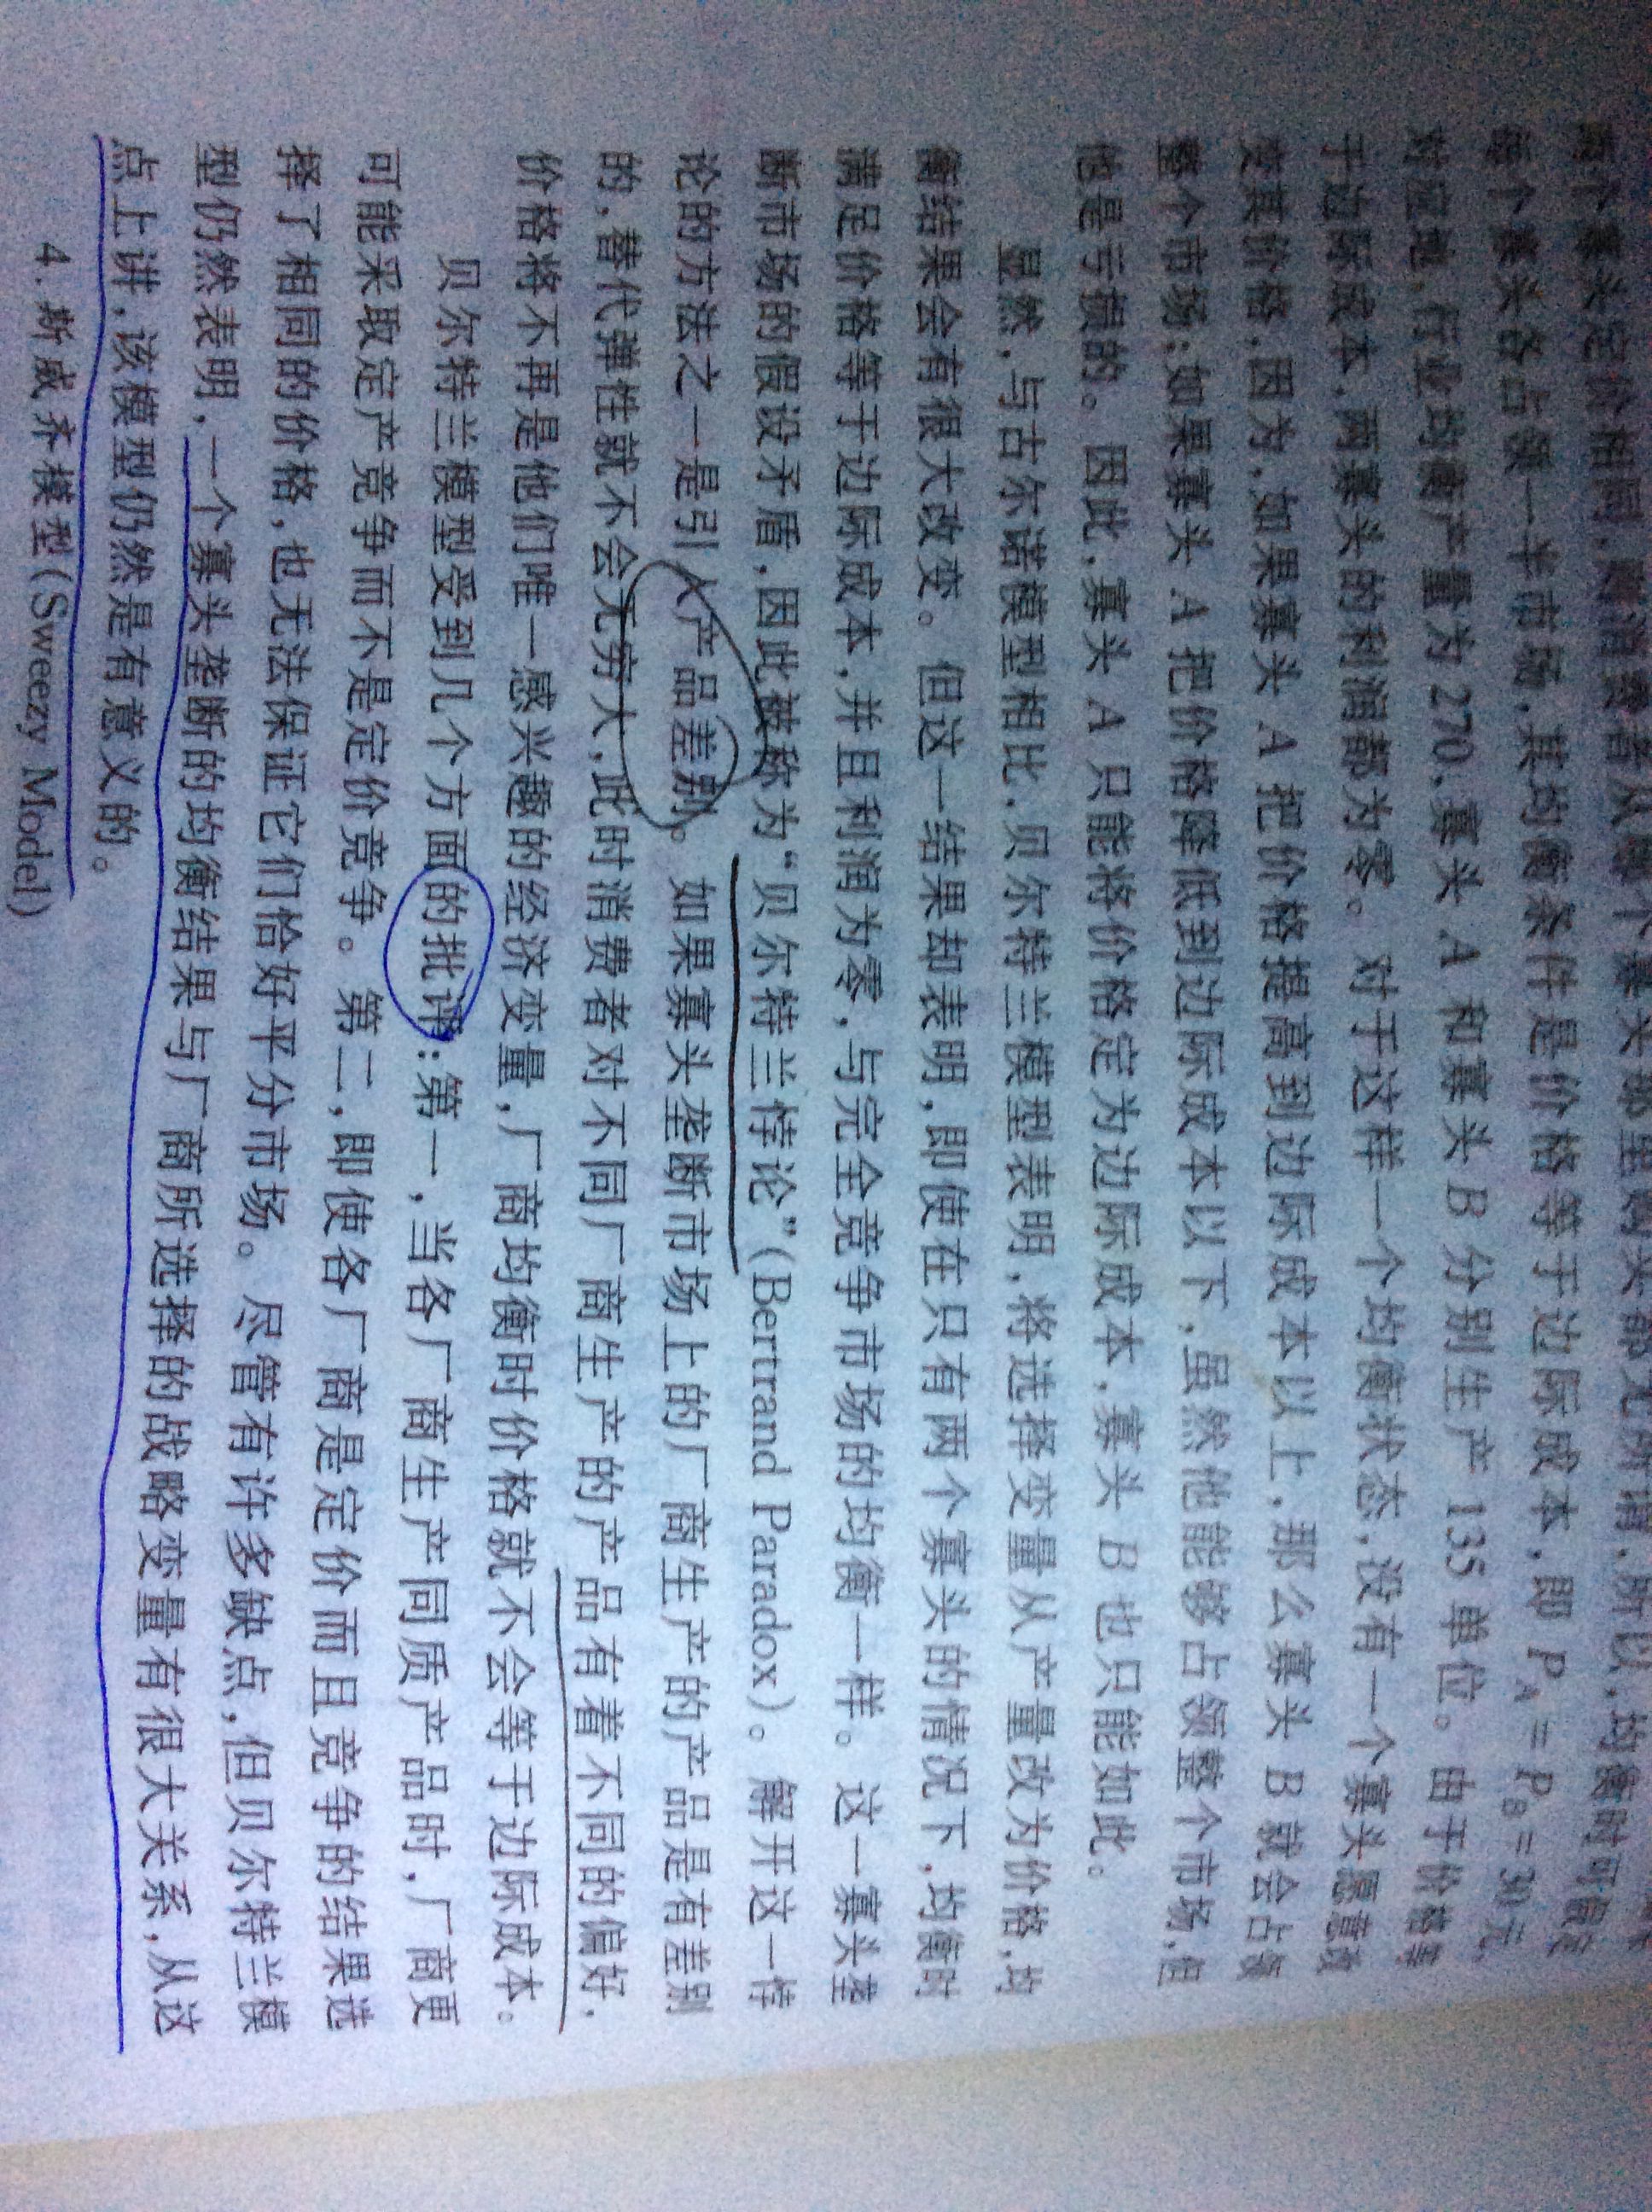 两个寡头定价相同，则消费者从每个寡头那里购买都无所谓，所以，均衡时可假定
每个寡头各占领一半市场，其均衡条件是价格等于边际成本，即 P_A = P_B = 30元，
对应地，行业均衡产量为 270，寡头 A 和寡头 B 分别生产 135 单位。由于价格等
于边际成本，两寡头的利润都为零。对于这样一个均衡状态，没有一个寡头愿意改
变其价格，因为，如果寡头 A 把价格提高到边际成本以上，那么寡头 B 就会占领
整个市场；如果寡头 A 把价格降低到边际成本以下，虽然他能够占领整个市场，但
他是亏损的。因此，寡头 A 只能将价格定为边际成本，寡头 B 也只能如此。
显然，与古尔诺模型相比，贝尔特兰模型表明，将选择变量从产量改为价格，均
衡结果会有很大改变。但这一结果却表明，即使在只有两个寡头的情况下，均衡时
满足价格等于边际成本，并且利润为零，与完全竞争市场的均衡一样。这一寡头垄
断市场的假设矛盾，因此被称为“贝尔特兰悖论”(Bertrand Paradox)。解开这一悖
论的方法之一是引入产品差别。如果寡头垄断市场上的厂商生产的产品是有差别
的，替代弹性就不会无穷大，此时消费者对不同厂商生产的产品有着不同的偏好，
价格将不再是他们唯一感兴趣的经济变量，厂商均衡时价格就不会等于边际成本。
贝尔特兰模型受到几个方面的批评：第一，当各厂商生产同质产品时，厂商更
可能采取定产竞争而不是定价竞争。第二，即使各厂商是定价而且竞争的结果选
择了相同的价格，也无法保证它们恰好平分市场。尽管有许多缺点，但贝尔特兰模
型仍然表明，一个寡头垄断的均衡结果与厂商所选择的战略变量有很大关系，从这
点上讲，该模型仍然是有意义的。
4. 斯威齐模型(Sweezy Model)